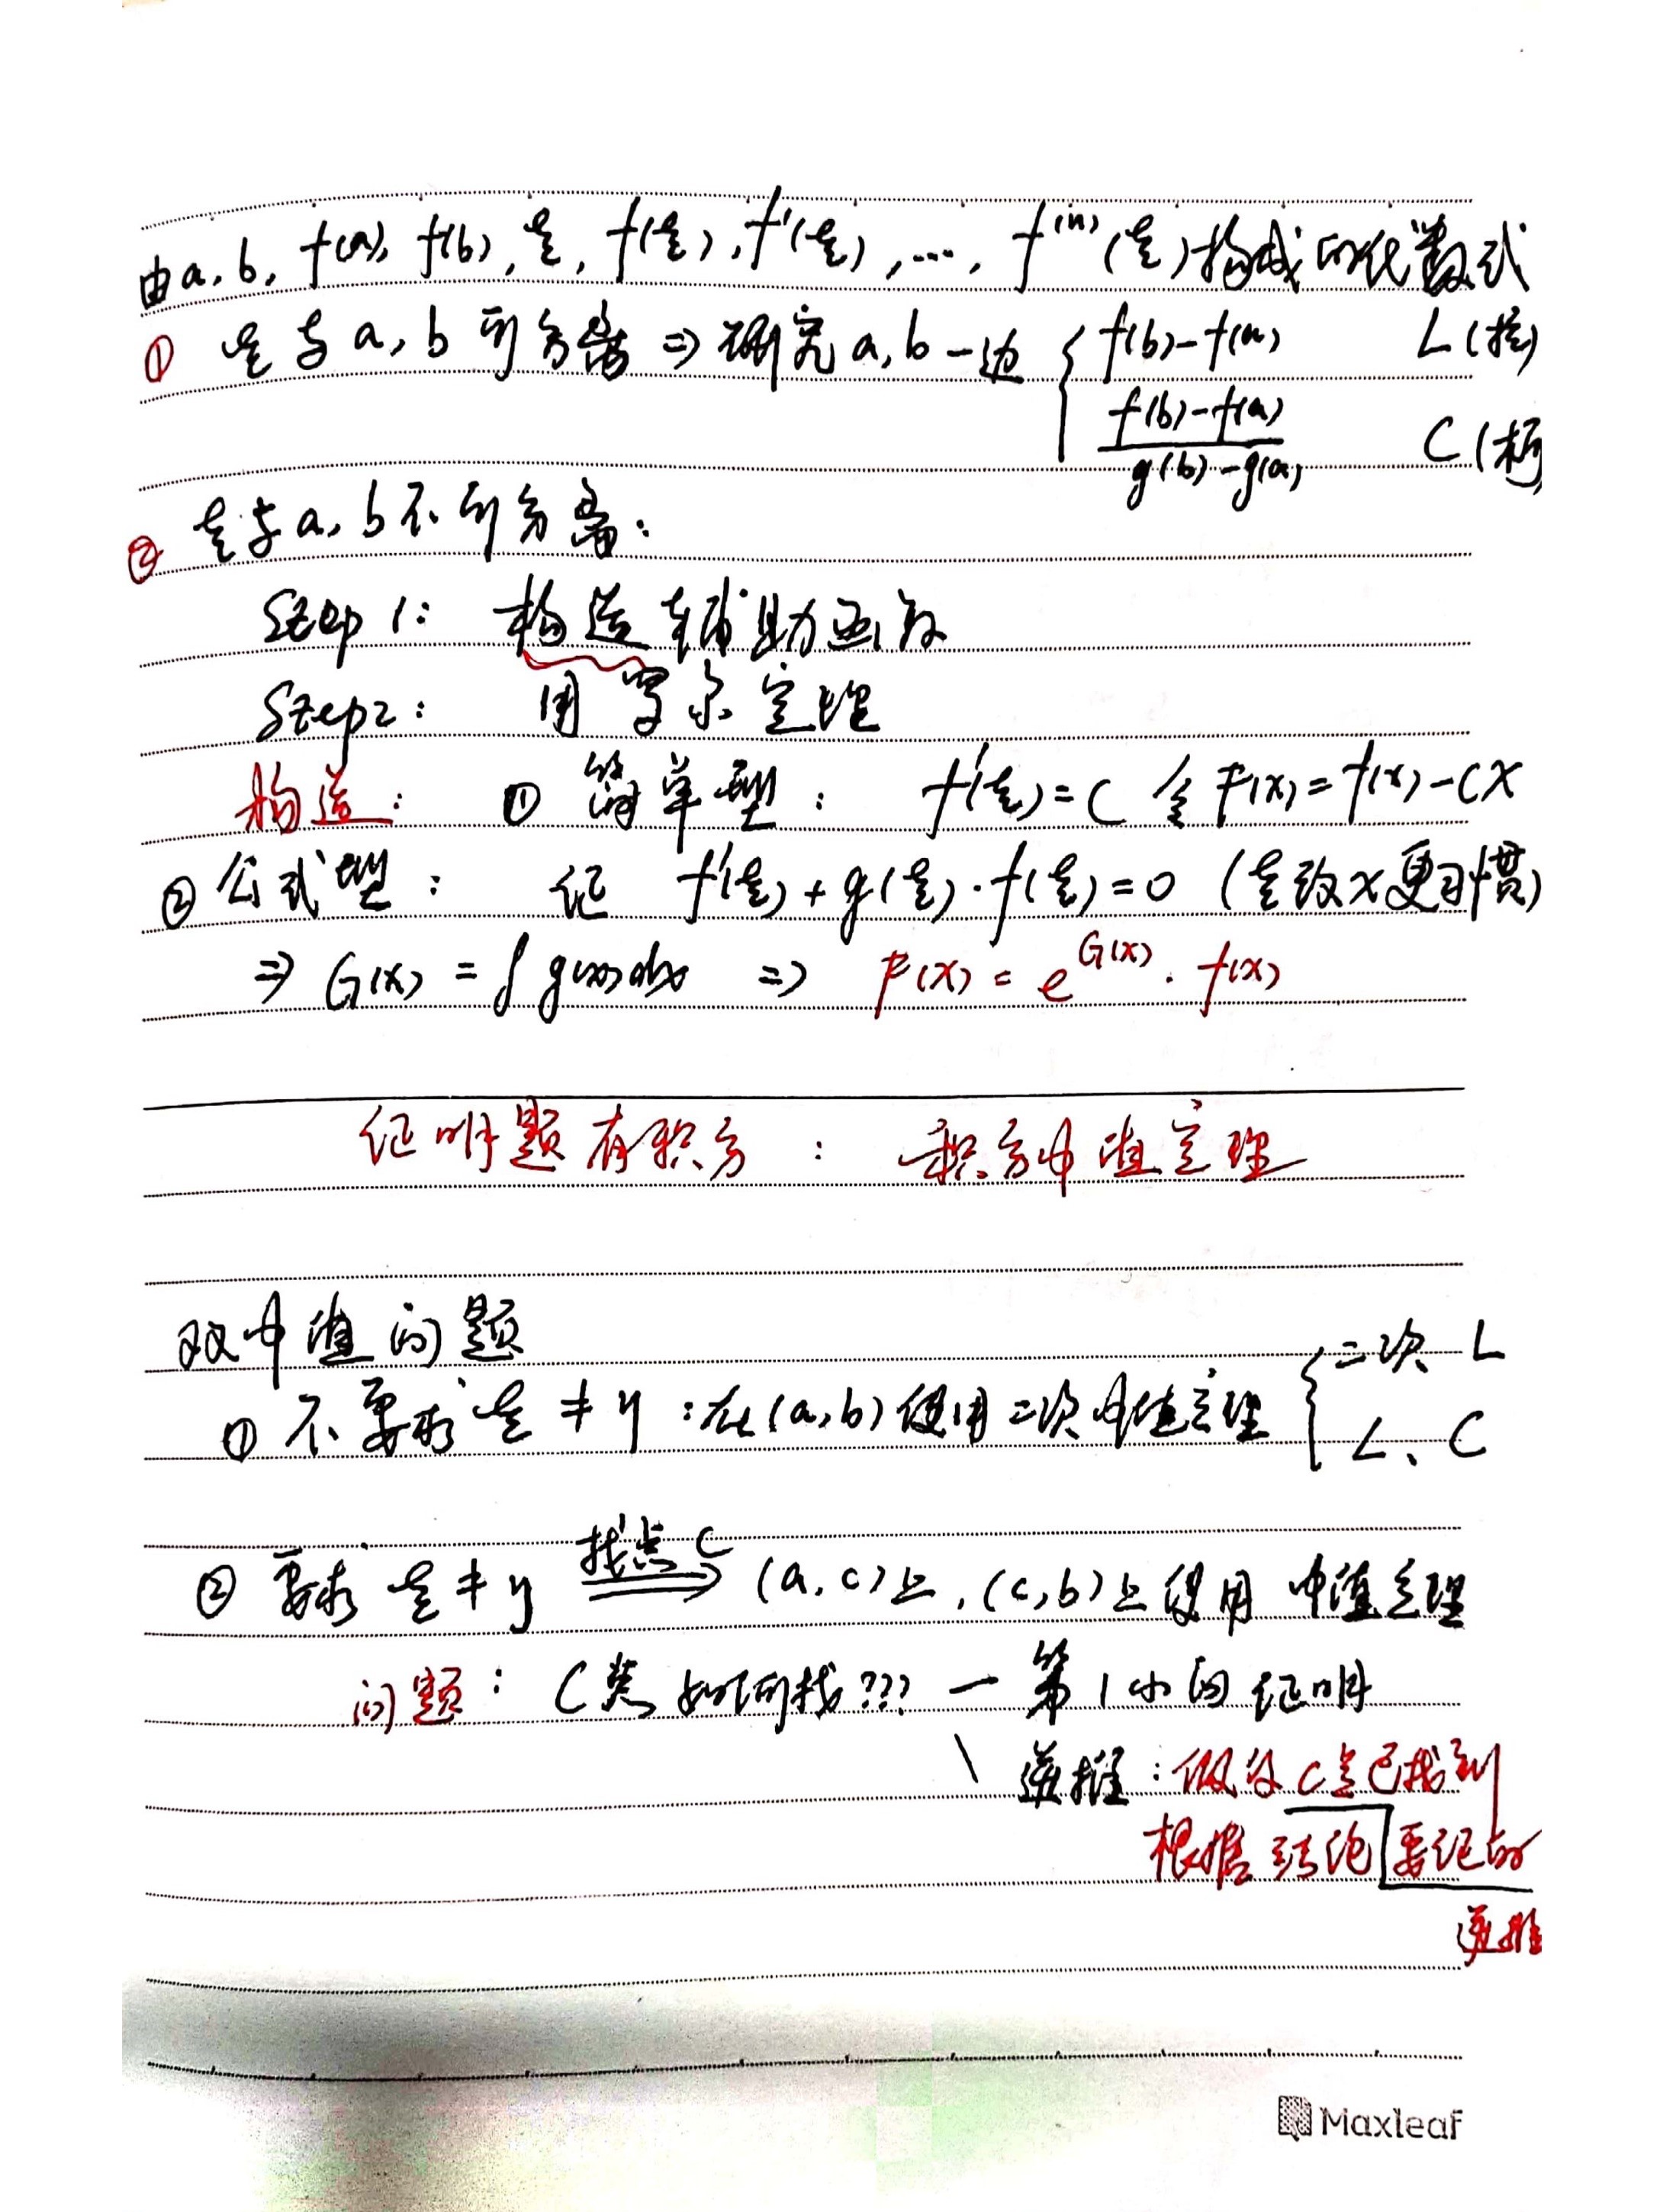 由a, b, f(a), f(b), ξ, f(ξ), f'(ξ), ..., f⁽ⁿ⁾(ξ)构成的代数式
① ξ与a, b可分离 ⇒ 研究a, b一边 { f(b)-f(a) L(拉)
(f(b)-f(a))/(g(b)-g(a)) C(柯
② ξ与a, b不可分离:
Step 1: 构造辅助函数
Step2: 用罗尔定理
构造: ① 简单型: f'(ξ)=C 令F(x)=f(x)-Cx
②公式型: 证 f'(ξ)+g(ξ)·f(ξ)=0 (ξ改x更习惯)
⇒ G(x) = ∫g(x)dx ⇒ F(x) = e^G(x)·f(x)
证明题有积分: 积分中值定理
双中值问题
① 不要求ξ≠η:在(a,b)使用二次中值定理 { 二次 L
L、C
② 要求ξ≠η 找点C⇒ (a,c)上,(c,b)上使用中值定理
问题: C点如何找??? — 第1小问证明
\ 逆推:假设C点已找到
根据结论要证的
逆推
Maxleaf